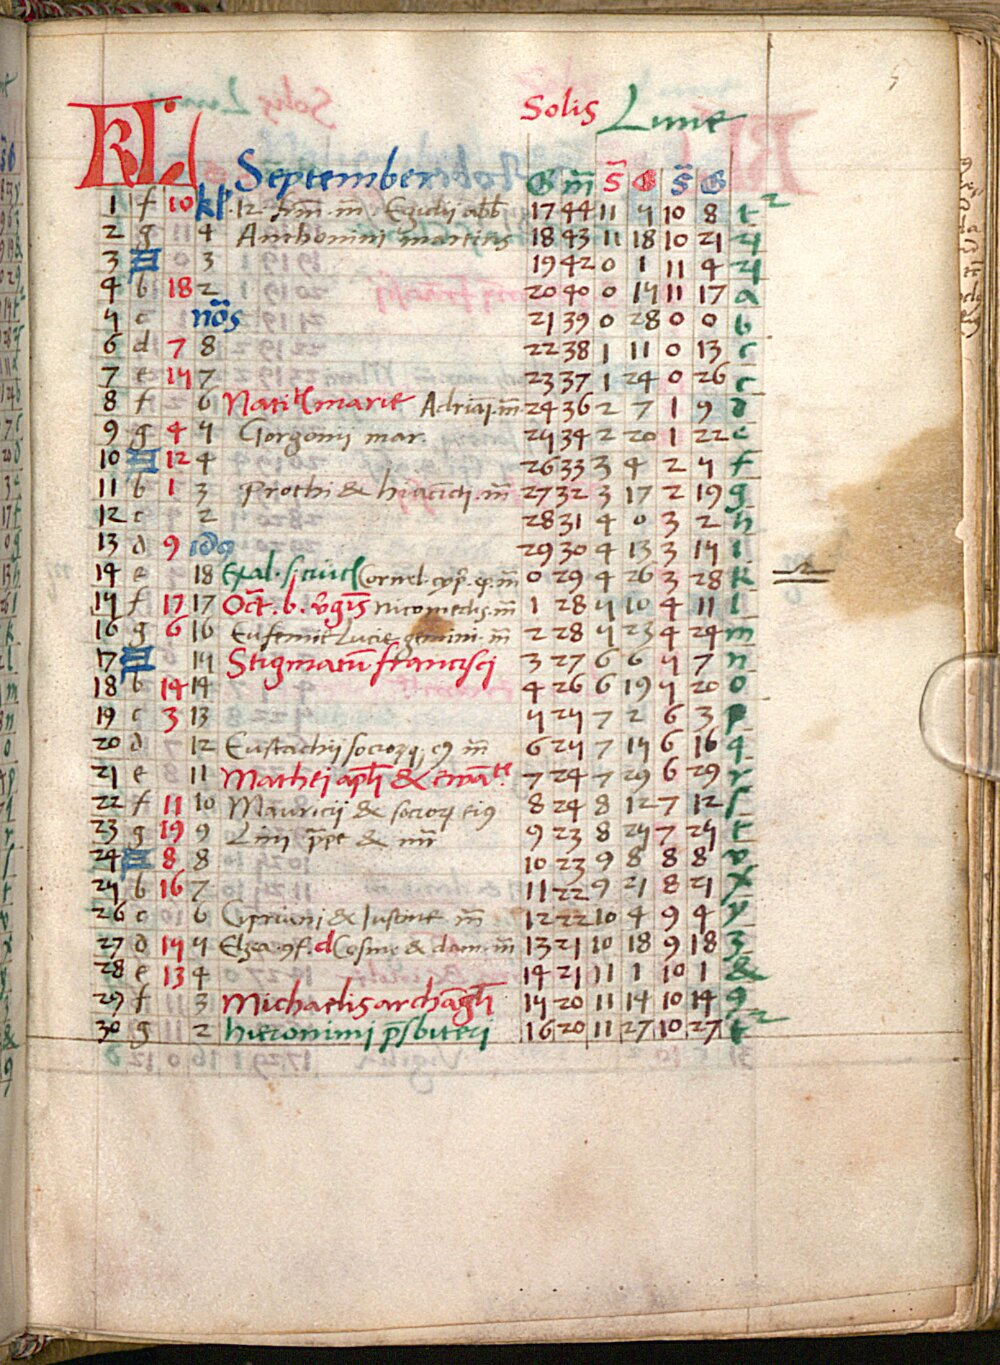 5
Solis Lune
KL September
G m̄ S̄ G S̄ G
1 f 10 kl. 12 frm. m̄. Egidij abb 17 44 11 5 10 8 t
2 g 4 Anthonini martiris 18 43 11 18 10 21
3 3 19 42 0 1 11 4
4 b 18 2 20 40 0 15 11 17 a
5 c nōs 21 39 0 28 0 0 b
6 d 7 8 22 38 1 11 0 13 c
7 e 15 7 23 37 1 24 0 26 c
8 f 6 Natiᵗ marie Adriaj. m̄ 24 36 2 7 1 9 d
9 g 4 5 Gorgonij mar. 25 34 2 20 1 22 e
10 12 4 26 33 3 4 2 5 f
11 b 1 3 prothi & hiacīcti. m̄ 27 32 3 17 2 19 g
12 c 2 28 31 4 0 3 2 h
13 d 9 idꝯ 29 30 4 13 3 15 i
14 e 18 Exal. s. crucis Cornel. cyp̄. ep. m̄ 0 29 4 26 3 28 k
15 f 17 17 Oct. b. v̄gīs Nicomedis. m̄ 1 28 5 10 4 11 l
16 g 6 16 Eufemie Lucie gemini. m̄ 2 28 5 23 4 24 m
17 15 Stigmatū francisci 3 27 6 6 5 7 n
18 b 14 14 4 26 6 19 5 20 o
19 c 3 13 5 25 7 2 6 3 p
20 d 12 Eustachij socioꝝq; eꝯ m̄ 6 25 7 15 6 16 q
21 e 11 Mathei apłi & ewāᵗᵉ 7 24 7 29 6 29 r
22 f 11 10 Mauricij & socioꝝ eiꝯ 8 24 8 12 7 12 s
23 g 19 9 Lini p̄pe & m̄ 9 23 8 25 7 25 t
24 8 8 10 23 9 8 8 8 v
25 b 16 7 11 22 9 21 8 21 x
26 c 6 Cipriani & Iustine m̄ 12 22 10 4 9 4 y
27 d 15 5 Elzea. ꝯf. d Cosme & dam. m̄ 13 21 10 18 9 18 z
28 e 13 4 14 21 11 1 10 1 &
29 f 3 Michaelis archāgłi 15 20 11 14 10 14 ꝯ
30 g 2 hieronimi p̄sbiteri 16 20 11 27 10 27 t